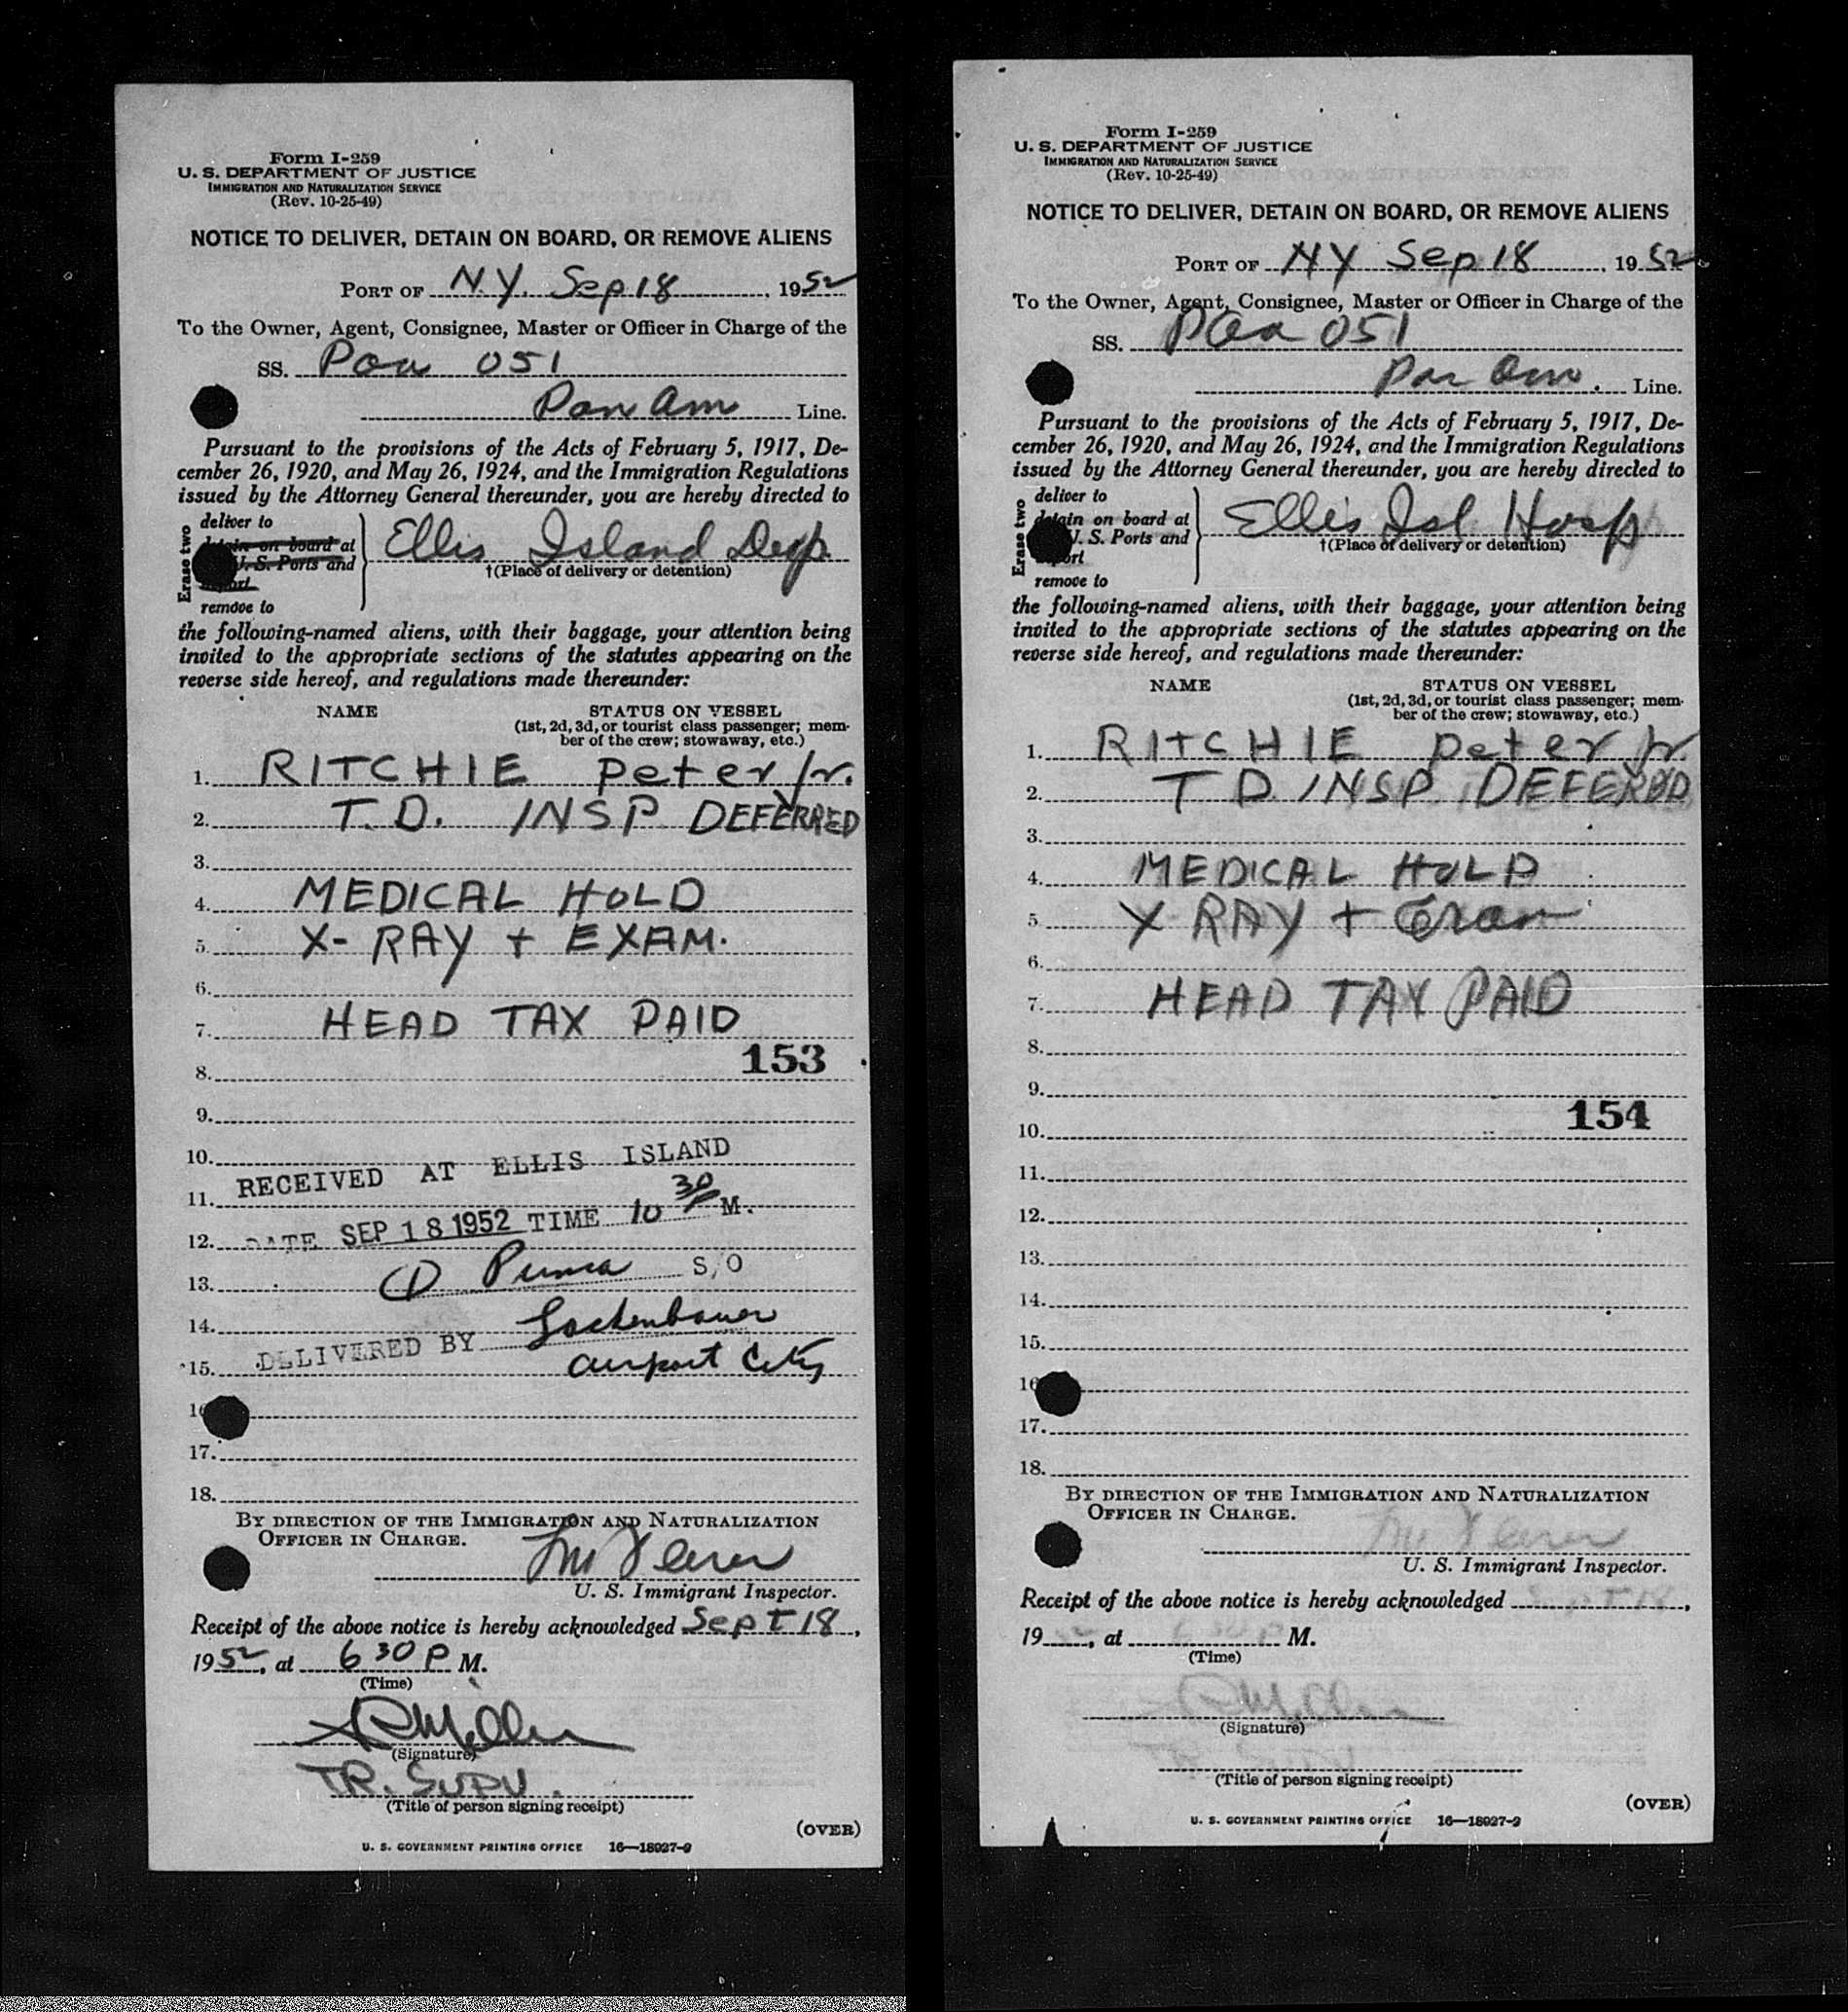 Form I-259
U. S. DEPARTMENT OF JUSTICE
IMMIGRATION AND NATURALIZATION SERVICE
(Rev. 10-25-49)
NOTICE TO DELIVER, DETAIN ON BOARD, OR REMOVE ALIENS
PORT OF N.Y. Sep 18, 1952
To the Owner, Agent, Consignee, Master or Officer in Charge of the
SS. Paa 051
Pan Am Line.
Pursuant to the provisions of the Acts of February 5, 1917, De-
cember 26, 1920, and May 26, 1924, and the Immigration Regulations
issued by the Attorney General thereunder, you are hereby directed to
Erase two
deliver to
detain on board at
U. S. Ports and
remove to
Ellis Island
†(Place of delivery or detention)
the following-named aliens, with their baggage, your attention being
invited to the appropriate sections of the statutes appearing on the
reverse side hereof, and regulations made thereunder:
NAME STATUS ON VESSEL
(1st, 2d, 3d, or tourist class passenger; mem-
ber of the crew; stowaway, etc.)
1. RITCHIE Peter Jr.
2. T.D. INSP DEFERRED
3.
4. MEDICAL HOLD
5. X-RAY + EXAM.
6.
7. HEAD TAX PAID
153
8.
9.
10.
RECEIVED AT ELLIS ISLAND
11.
12. DATE SEP 18 1952 TIME 10 30 P M.
13. S/O
14.
DELIVERED BY
15. airport City
16
17.
18.
BY DIRECTION OF THE IMMIGRATION AND NATURALIZATION
OFFICER IN CHARGE.
U. S. Immigrant Inspector.
Receipt of the above notice is hereby acknowledged Sept 18,
1952, at 6 30 P M.
(Time)
(Signature)
TR. SUPV.
(Title of person signing receipt)
(OVER)
U. S. GOVERNMENT PRINTING OFFICE 16—18027-9
Form I-259
U. S. DEPARTMENT OF JUSTICE
IMMIGRATION AND NATURALIZATION SERVICE
(Rev. 10-25-49)
NOTICE TO DELIVER, DETAIN ON BOARD, OR REMOVE ALIENS
PORT OF NY Sep 18, 1952
To the Owner, Agent, Consignee, Master or Officer in Charge of the
SS. Paa 051
Pan Am. Line.
Pursuant to the provisions of the Acts of February 5, 1917, De-
cember 26, 1920, and May 26, 1924, and the Immigration Regulations
issued by the Attorney General thereunder, you are hereby directed to
Erase two
deliver to
detain on board at
U. S. Ports and
remove to
Ellis Isl Hosp
†(Place of delivery or detention)
the following-named aliens, with their baggage, your attention being
invited to the appropriate sections of the statutes appearing on the
reverse side hereof, and regulations made thereunder:
NAME STATUS ON VESSEL
(1st, 2d, 3d, or tourist class passenger; mem-
ber of the crew; stowaway, etc.)
1. RITCHIE Peter Jr.
2. T D INSP DEFERRED
3.
4. MEDICAL HOLD
5. X RAY + Exam
6.
7. HEAD TAX PAID
8.
9.
154
10.
11.
12.
13.
14.
15.
16
17.
18.
BY DIRECTION OF THE IMMIGRATION AND NATURALIZATION
OFFICER IN CHARGE.
U. S. Immigrant Inspector.
Receipt of the above notice is hereby acknowledged Sept 18,
19, at 6 30 P M.
(Time)
(Signature)
(Title of person signing receipt)
(OVER)
U. S. GOVERNMENT PRINTING OFFICE 16—18027-9